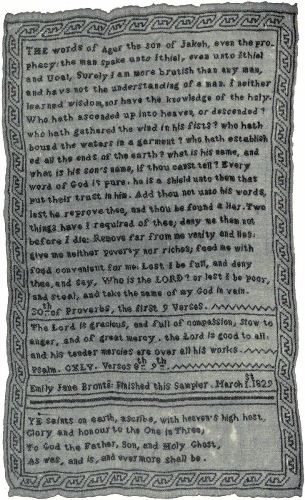 THE words of Agur the son of Jakeh, even the pro-
phecy: the man spake unto Ithiel, even unto Ithiel
and Ucal, Surely I am more brutish than any man,
and have not the understanding of a man. I neither
learned wisdom, nor have the knowledge of the holy.
Who hath ascended up into heaven, or descended?
who hath gathered the wind in his fists? who hath
bound the waters in a garment? who hath establish
ed all the ends of the earth? what is his name, and
what is his son's name, if thou canst tell? Every
word of God is pure: he is a shield unto them that
put their trust in him. Add thou not unto his words,
lest he reprove thee, and thou be found a liar. Two
things have I required of thee; deny me them not
before I die: Remove far from me vanity and lies:
give me neither poverty nor riches; feed me with
food convenient for me: Lest I be full, and deny
thee, and say, Who is the LORD? or lest I be poor,
and steal, and take the name of my God in vain.
30th of Proverbs, the first 9 Verses.
The Lord is gracious, and full of compassion; slow to
anger, and of great mercy. the Lord is good to all:
and his tender mercies are over all his works.
Psalm. CXLV. Verses 8th 9th
Emily Jane Brontë: Finished this Sampler. March 1st 1829
YE saints on earth, ascribe, with heaven's high host,
Glory and honour to the One in Three;
To God the Father, Son, and Holy Ghost,
As was, and is, and evermore shall be.